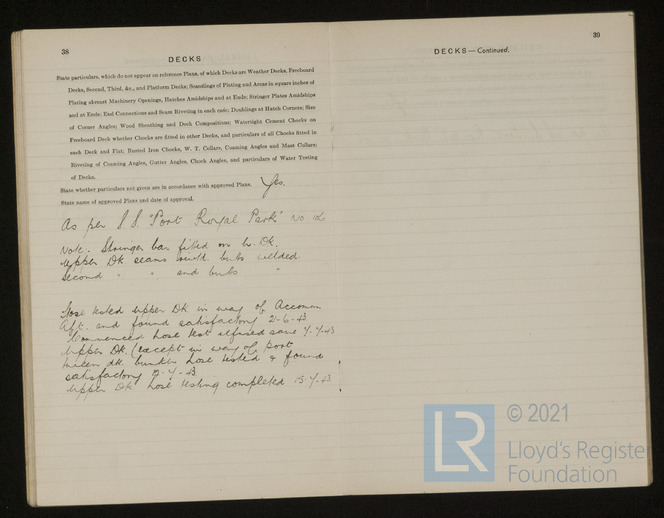 38
DECKS
State particulars, which do not appear on reference Plans, of which Decks are Weather Decks, Freeboard
Decks, Second, Third, &c., and Platform Decks; Scantlings of Plating and Areas in square inches of
Plating abreast Machinery Openings, Hatches Amidships and at Ends; Stringer Plates Amidships
and at Ends; End Connections and Seam Riveting in each case; Doublings at Hatch Corners; Size
of Corner Angles; Wood Sheathing and Deck Compositions; Watertight Cement Chocks on
Freeboard Deck whether Chocks are fitted in other Decks, and particulars of all Chocks fitted in
each Deck and Flat; Rusted Iron Chocks, W. T. Collars, Coaming Angles and Mast Collars;
Riveting of Coaming Angles, Gutter Angles, Chock Angles, and particulars of Water Testing
of Decks.
State whether particulars not given are in accordance with approved Plans. Yes.
State name of approved Plans and date of approval.
As per S.S. "Port Royal Park" No
Note - Stringer bar fitted on Dk.
Upper Dk seams butts welded.
Second " " and butts "
Hose tested upper Dk in way of Accomm
Aft. and found satisfactory 2-6-43
Commenced hose test same
Upper Dk. (except in way of port
bunker hose tested & found
satisfactory
Upper Dk hose testing completed
39
DECKS—Continued.
LR
© 2021
Lloyd's Registe
Foundation